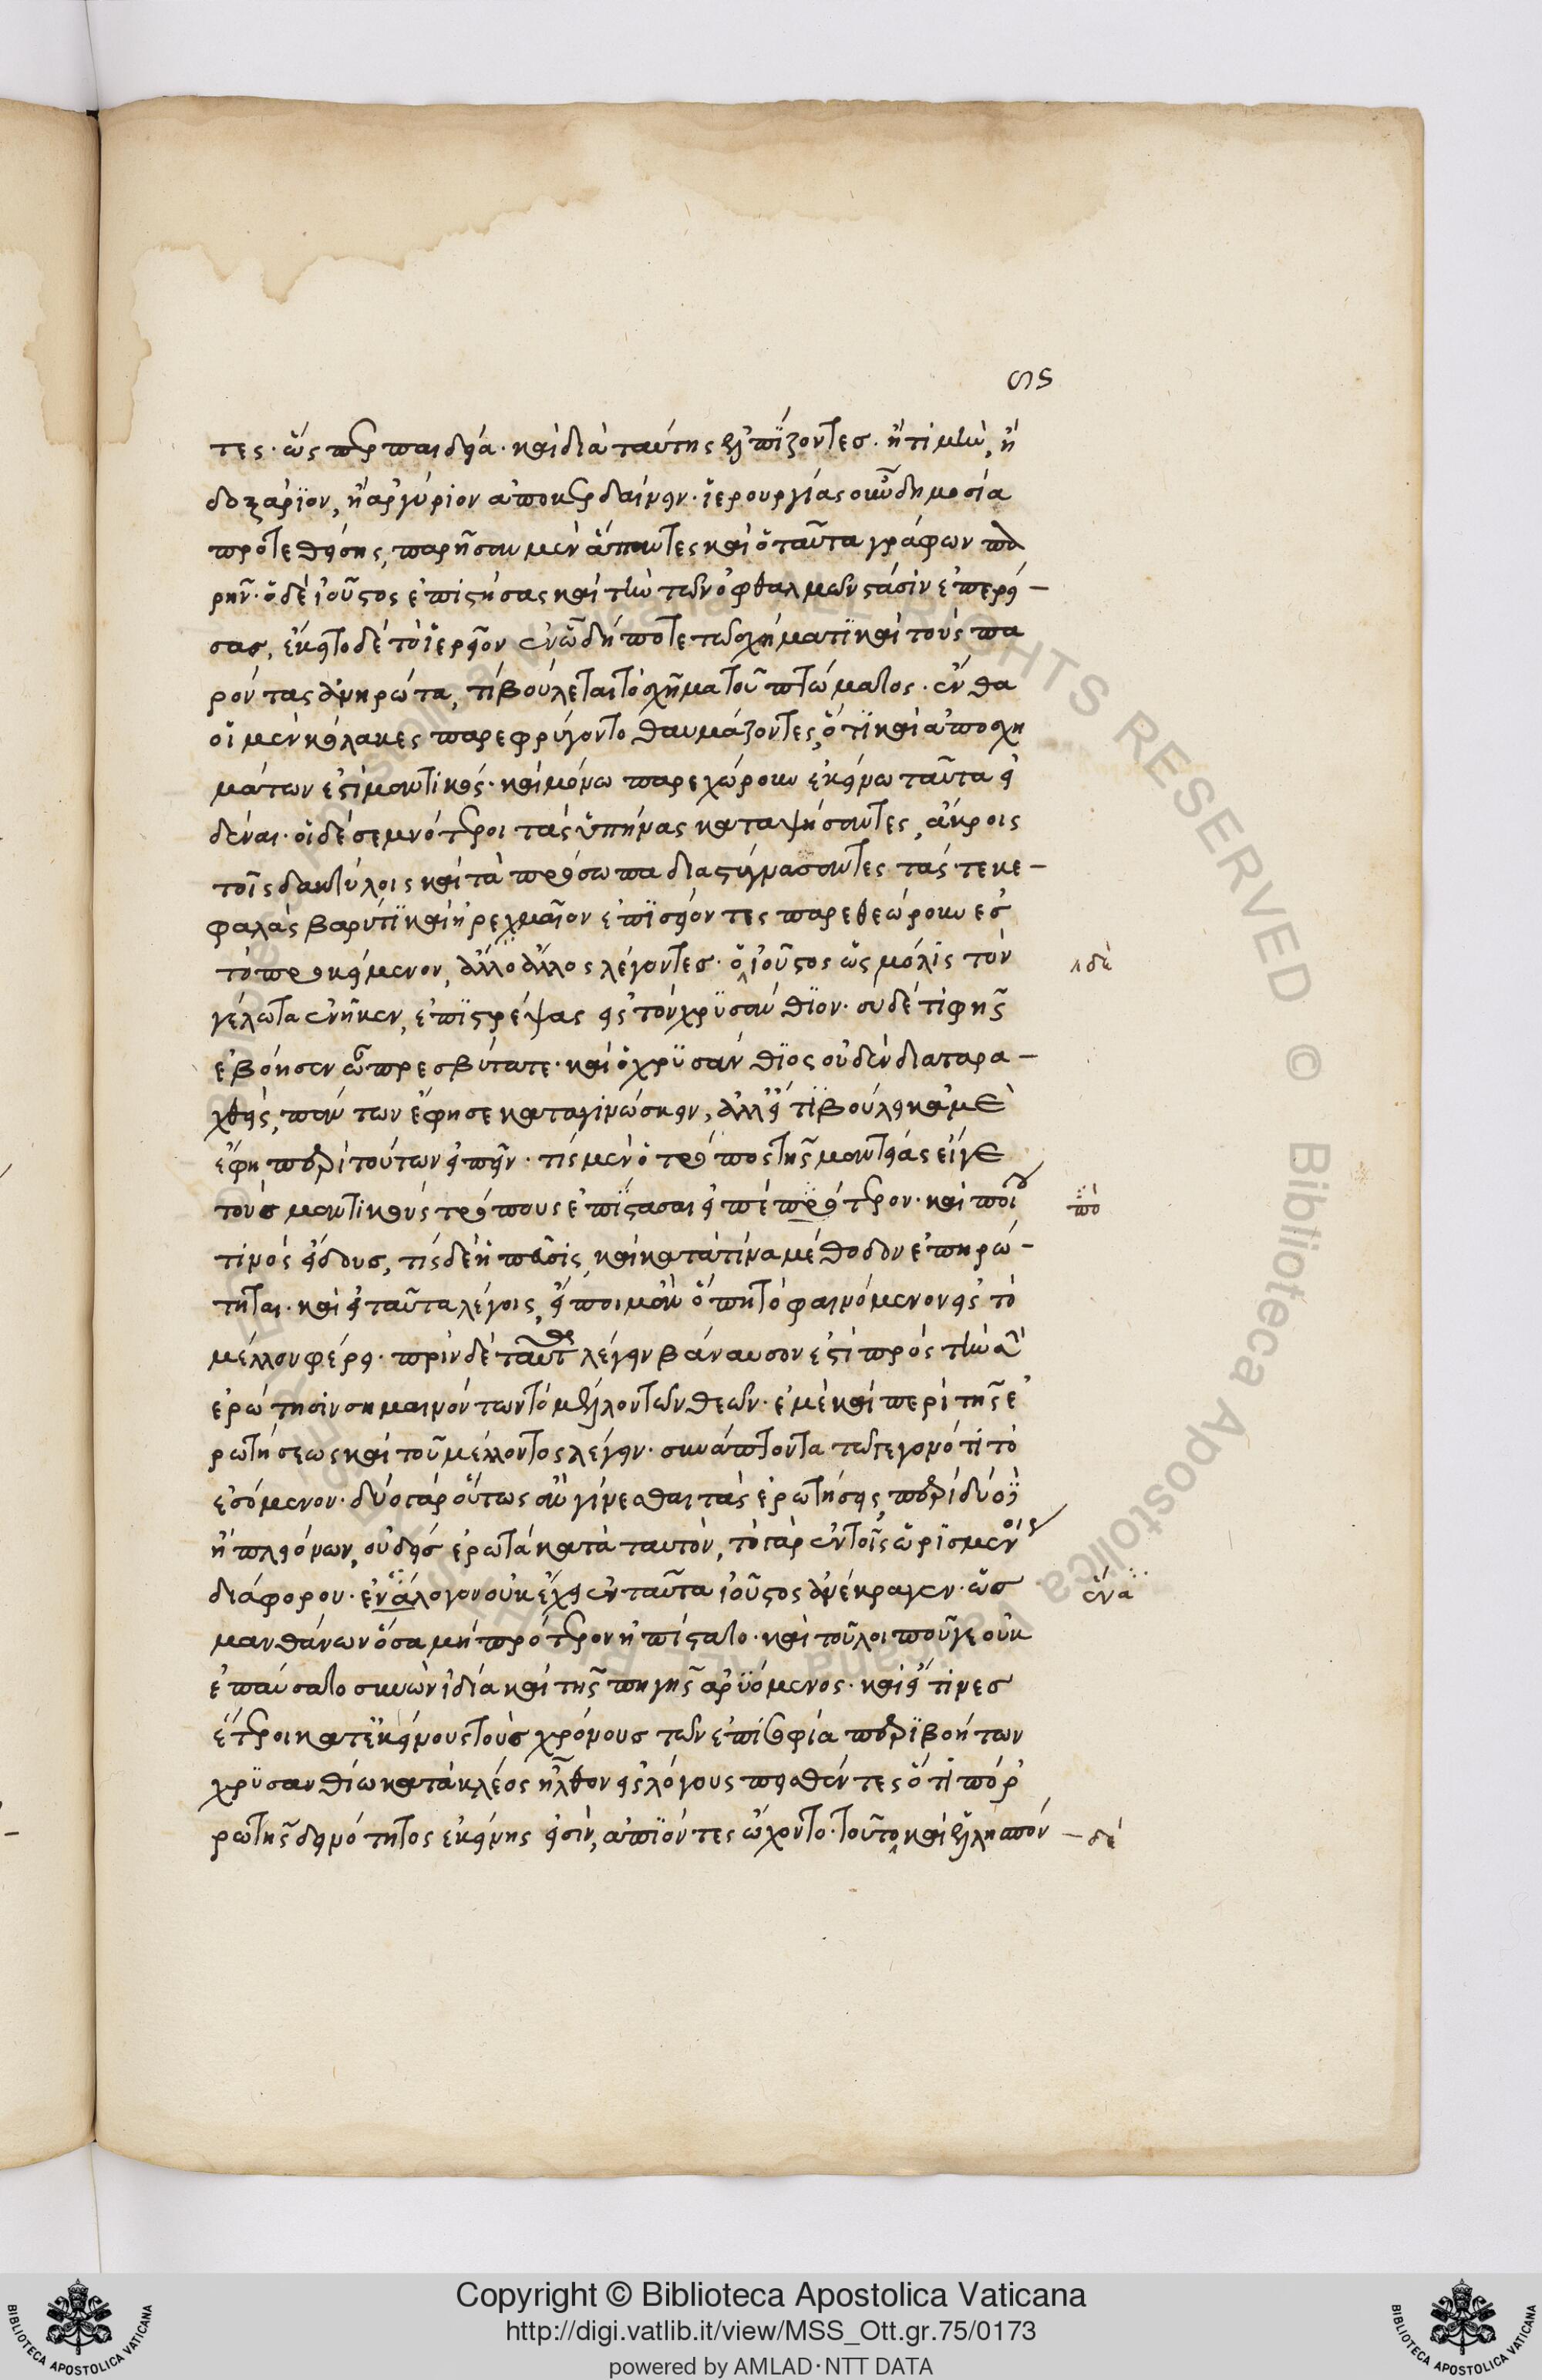 ϟς
τες· ὥς περ παιδεία· καὶ διὰ ταύτης ἐλπίζοντες· ἢ τιμὴν, ἢ
δοξάριον, ἢ ἀργύριον ἀποκερδαίνειν· ἱερουργίας οὖν δημοσία
προτεθείσης, παρῆσαν μὲν ἅπαντες καὶ ὁ ταῦτα γράφων πα
ρῆν· ὁ δὲ ἰοῦστος ἐπιστήσας καὶ τὴν τῶν ὀφθαλμῶν στάσιν ἐπερεί-
σας, ἔκειτο δὲ τὸ ἱερεῖον ἐν ᾧ δήποτε τῶ σχήματι καὶ τοὺς πα
ρόντας ἀνηρώτα, τί βούλεται τὸ σχῆμα τοῦ πτώματος· ἔνθα
οἱ μὲν κόλακες παρεφρύγοντο θαυμάζοντες, ὅτι καὶ ἀπὸ σχη
μάτων ἐστὶ μαντικός· καὶ μόνω παρεχώρουν ἐκείνω ταῦτα εἰ
δέναι· οἱ δὲ σεμνότεροι τὰς ὑπήνας καταψήσαντες, ἄκροις
τοῖς δακτύλοις καὶ τὰ πρόσωπα διαστυγνάσαντες τάς τε κε-
φαλὰς βαρύ τι καὶ ἠρεμαῖον ἐπισείοντες παρεθεώρουν ἐς
τὸ προκείμενον, ἄλλο ἄλλος λέγοντες· ὁ ἰοῦστος ὡς μόλις τὸν
γέλωτα ἐνῆκεν, ἐπιστρέψας εἰς τὸν χρυσάνθιον· σὺ δὲ τί φῆς
ἐβόησεν ὦ πρεσβύτατε· καὶ ὁ χρυσάνθιος οὐδὲν διαταρα-
χθεὶς, πάντων ἔφησε καταγινώσκειν, ἀλλ' εἴ τι βούλει κἀμὲ
ἔφη περὶ τούτων εἰπεῖν· τίς μὲν ὁ τρόπος τῆς μαντείας εἴγε
τοὺς μαντικοὺς τρόπους ἐπίστασαι εἰπὲ πρότερον· καὶ ποίου
τινὸς εἴδους, τίς δὲ ἡ πεῦσις, καὶ κατὰ τίνα μέθοδον ἐπηρώ-
τηται· καὶ εἰ ταῦτα λέγοις, εἴποιμ' ἂν ὅπη τὸ φαινόμενον εἰς τὸ
μέλλον φέρει· πρὶν δὲ ταῦτα δὲ λέγειν βάναυσον ἐστὶ πρὸς τὴν σὴν
ἐρώτησιν σημαινόντων τὸ μέλλον τῶν θεῶν· ἐμὲ καὶ περὶ τῆς ἐ
ρωτήσεως καὶ τοῦ μέλλοντος λέγειν· συνάπτοντα τῶ γεγονότι τὸ
ἐσόμενον· δύο γὰρ οὕτως ἂν γίνεσθαι τὰς ἐρωτήσεις, περὶ δύο
ἢ πλειόνων, οὐδεὶς ἐρωτᾶ κατὰ ταυτὸν, τὸ γὰρ ἐν τοῖς ὡρισμένοις
διάφορον· ἕνα λόγον οὐκ ἔχει ἐνταῦτα ἰοῦστος ἀνέκραγεν· ὡς
μανθάνων ὅσα μὴ πρότερον ἠπίστατο· καὶ τοῦ λοιποῦ γε οὐκ
ἐπαύσατο συνὼν ἰδία καὶ τῆς πηγῆς ἀρυόμενος· καὶ εἴ τινες
ἕτεροι κατ' ἐκείνους τοὺς χρόνους τῶν ἐπὶ σοφία περιβοήτων
χρυσανθίω κατὰ κλέος ἦλθον εἰς λόγους πεισθέντες ὅτι πόρ
ρω τῆς δεινότητος ἐκείνης εἰσὶν, ἀπιόντες ᾤχοντο· τοῦτο καὶ ἑλλησπόν
δὲ
πο
ἕνα
δὲ
Copyright © Biblioteca Apostolica Vaticana
http://digi.vatlib.it/view/MSS_Ott.gr.75/0173
powered by AMLAD·NTT DATA